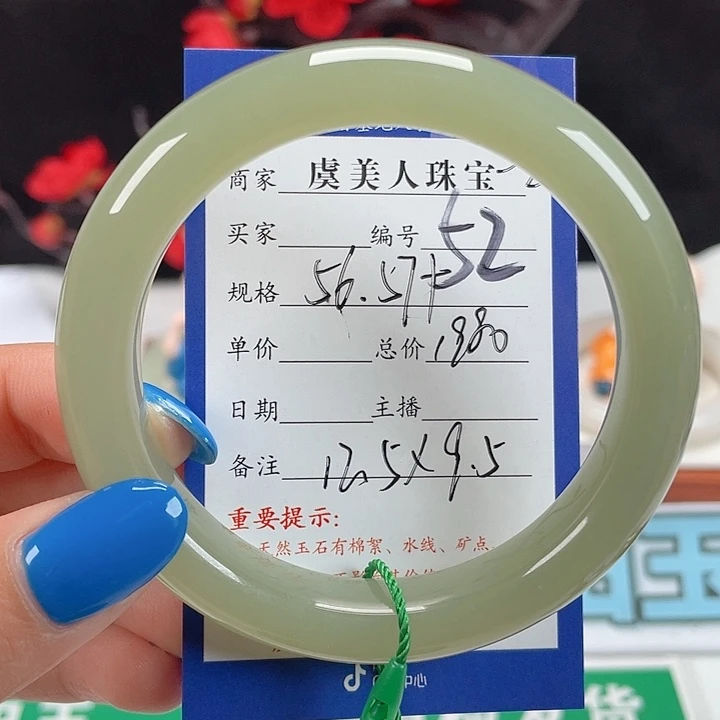 商家 虞美人珠宝
买家 编号 52
规格 56.57+
单价 总价 1980
日期 主播
备注 12.5×9.5
重要提示:
天然玉石有棉絮、水线、矿点、
中心